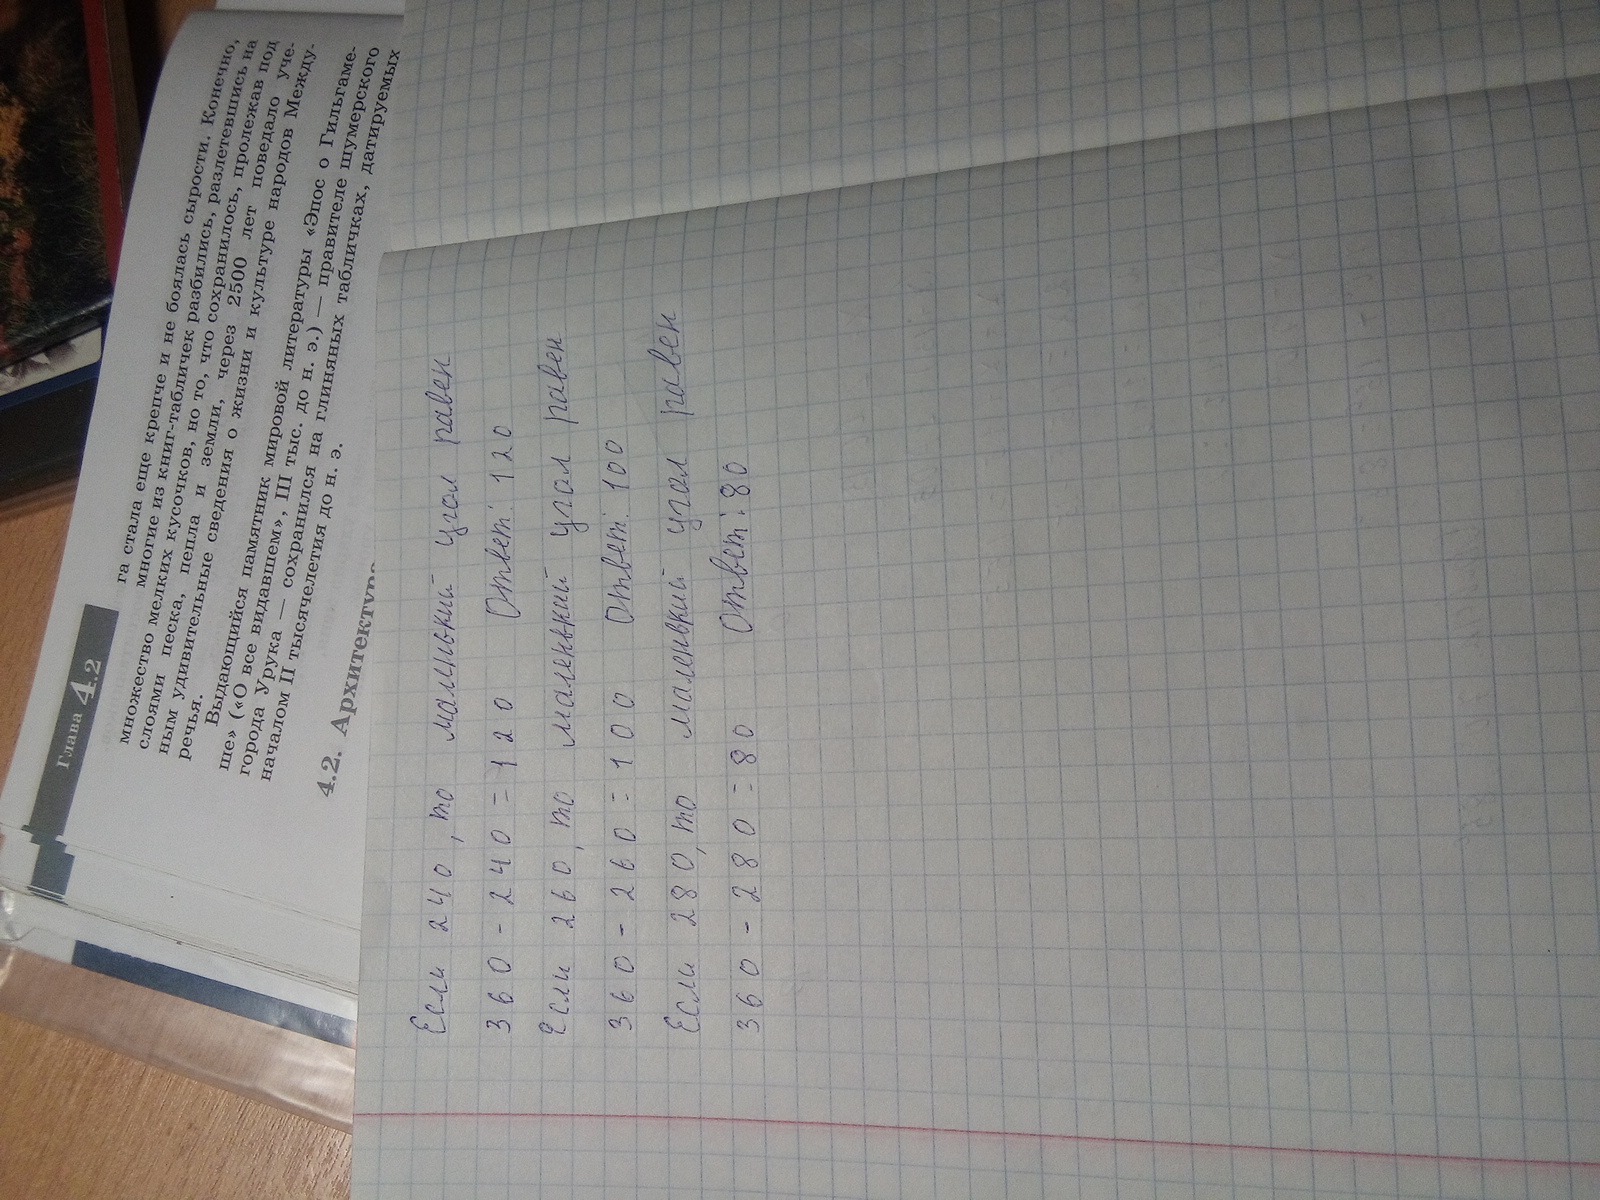 Глава 4.2
га стала еще крепче и не боялась сырости. Конечно,
многие из книг-табличек разбились, разлетевшись на
множество мелких кусочков, но то, что сохранилось, пролежав под
слоями песка, пепла и земли, через 2500 лет поведало уче-
ным удивительные сведения о жизни и культуре народов Между-
речья.
Выдающийся памятник мировой литературы «Эпос о Гильгаме-
ше» («О все видавшем», III тыс. до н. э.) — правителе шумерского
города Урука — сохранился на глиняных табличках, датируемых
началом II тысячелетия до н. э.
4.2. Архитектура
Если 240, то маленький угол равен
360 - 240 = 120 Ответ: 120
Если 260, то маленький угол равен
360 - 260 = 100 Ответ: 100
Если 280, то маленький угол равен
360 - 280 = 80 Ответ: 80